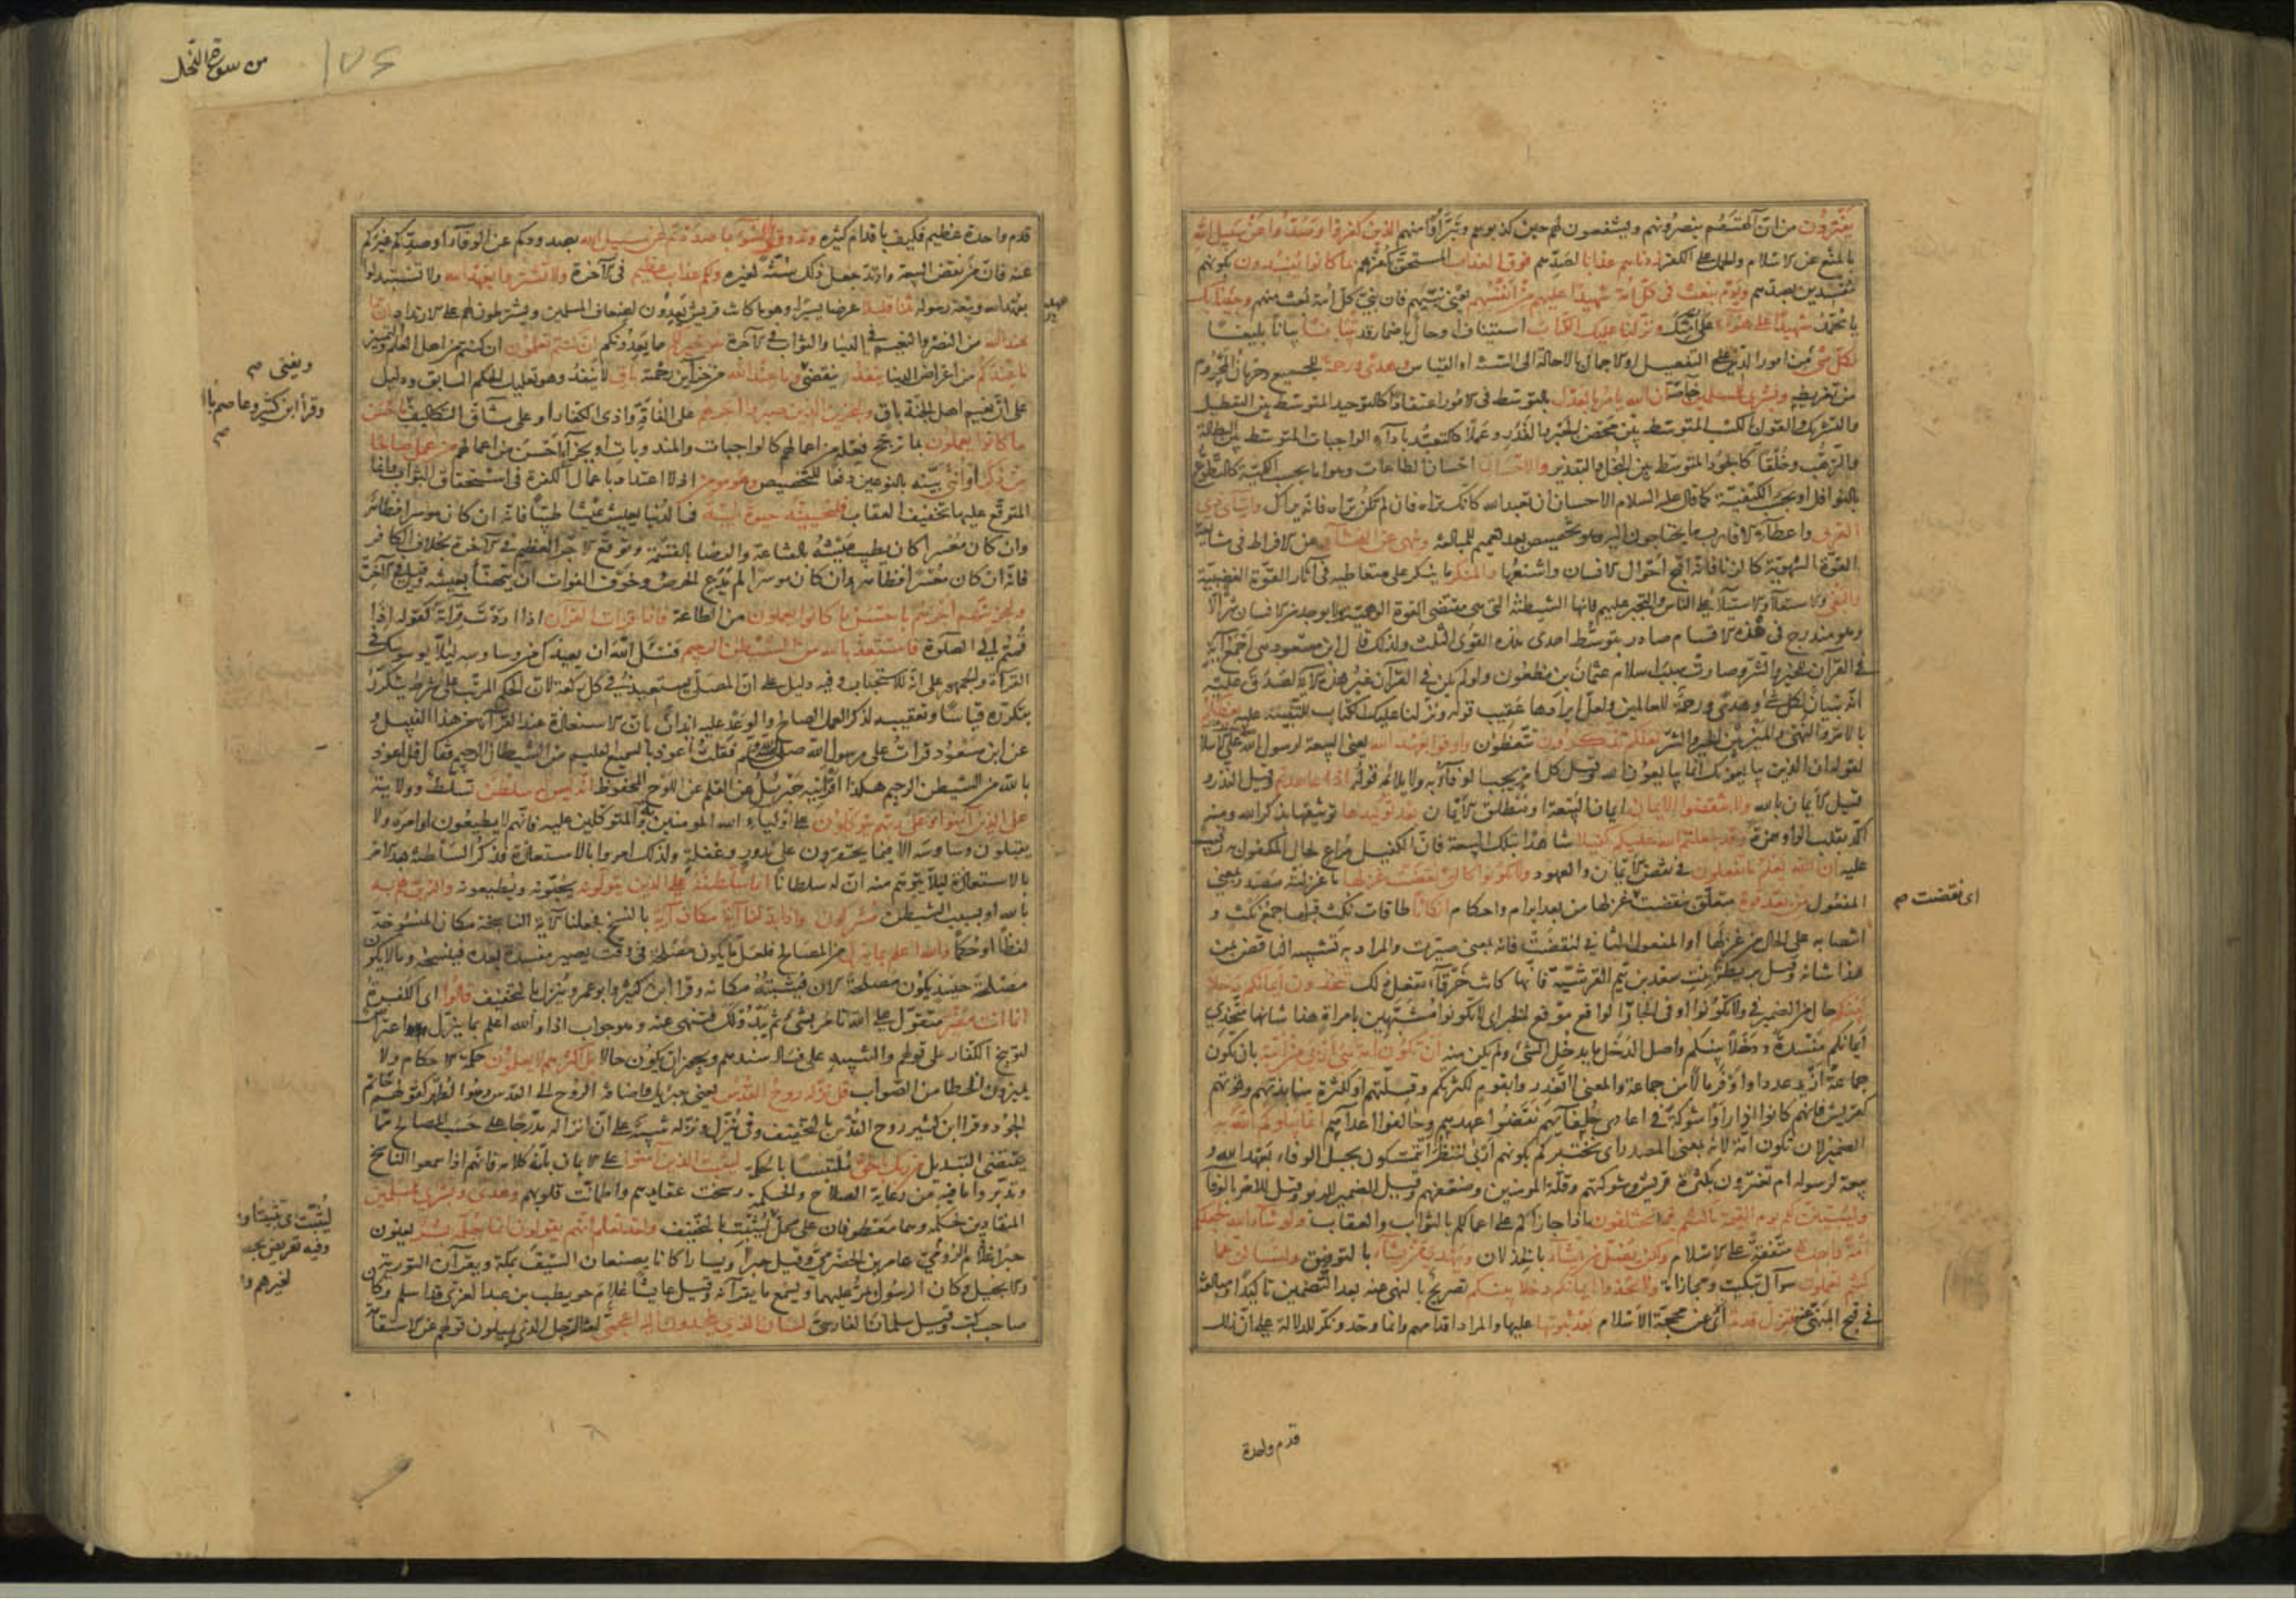 يفترون من ان آلهتهم ينصرونهم ويشفعون لهم حين كذبوهم وتبرأوا منهم الذين كفروا وصدوا عن سبيل الله
بالمنع عن الاسلام والحمل على الكفر زدناهم عذابا لصدهم فوق العذاب المستحق بكفرهم بما كانوا يفسدون بكونهم
مفسدين بصدهم ويوم نبعث فى كل امة شهيدا عليهم من انفسهم يعنى نبيهم فان نبى كل امة بعث منهم وجئنا بك
يا محمد شهيدا على هؤلاء على امتك ونزلنا عليك الكتاب استيناف او حال باضمار قد تبيانا بيانا بليغا
لكل شئ من امور الدين على التفصيل او الاجمال بالاحالة الى السنة او القياس وهدى ورحمة للجميع وحرمان المحروم
من تفريطه وبشرى للمسلمين خاصة ان الله يأمر بالعدل بالتوسط فى الامور اعتقادا كالتوحيد المتوسط بين التعطيل
والتشريك والقول بالكسب المتوسط بين محض الجبر والقدر وعملا كالتعبد باداء الواجبات المتوسط بين البطالة
والترهب وخلقا كالجود المتوسط بين البخل والتبذير والاحسان احسان الطاعات وهو اما بحسب الكمية كالتطوع
بالنوافل او بحسب الكيفية كما قال عليه السلام الاحسان ان تعبد الله كانك تراه فان لم تكن تراه فانه يراك وايتاى ذى
القربى واعطاء الاقارب ما يحتاجون اليه وهو تخصيص بعد تعميم للمبالغة وينهى عن الفحشاء عن الافراط فى متابعة
القوة الشهوية كالزنا فانه اقبح احوال الانسان واشنعها والمنكر ما ينكر على متعاطيه فى آثار القوة الغضبية
والبغى والاستعلاء والاستيلاء على الناس والتجبر عليهم فانها الشيطنة التى هى مقتضى القوة الوهمية ولا يوجد من الانسان شر الا
وهو مندرج فى هذه الاقسام صادر بتوسط احدى هذه القوى الثلث ولذلك قال ابن مسعود هى اجمع آية
فى القرآن للخير والشر وصارت سبب اسلام عثمان بن مظعون ولو لم يكن فى القرآن غير هذه الآية لصدق عليه
انه تبيان لكل شئ وهدى ورحمة للعالمين ولعل ايرادها عقيب قوله ونزلنا عليك الكتاب للتنبيه عليه يعظكم
بالامر والنهى والميز بين الخير والشر لعلكم تذكرون تتعظون واوفوا بعهد الله يعنى البيعة لرسول الله على الاسلام
لقوله ان الذين يبايعونك انما يبايعون الله وقيل كل امر يجب الوفاء به ولا يلائمه قوله اذا عاهدتم وقيل النذر و
قيل الايمان بالله ولا تنقضوا الايمان ايمان البيعة او مطلق الايمان بعد توكيدها توثيقها بذكر الله ومنه
اكد بقلب الواو همزة وقد جعلتم الله عليكم كفيلا شاهدا بتلك البيعة فان الكفيل مراع لحال المكفول به رقيب
عليه ان الله يعلم ما تفعلون فى نقض الايمان والعهود ولا تكونوا كالتى نقضت غزلها ما غزلته مصدر بمعنى
المفعول من بعد قوة متعلق بنقضت غزلها من بعد ابرام واحكام انكاثا طاقات نكث فتلها جمع نكث و
انتصابه على الحال من غزلها او المفعول الثانى لنقضت فانه بمعنى صيرت والمراد به تشبيه الناقض بمن
هذا شانه وقيل بريطة بنت سعد بن تيم القرشية فانها كانت خرقاء تفعل ذلك تتخذون ايمانكم دخلا
بينكم حال من الضمير فى ولا تكونوا او فى الجار الواقع موقع الخبر اى لا تكونوا متشبهين بامراة هذا شانها متخذى
ايمانكم مفسدة ودخلا بينكم واصل الدخل ما يدخل الشئ ولم يكن منه ان تكون امة هى اربى من امة بان تكون
جماعة ازيد عددا واوفر مالا من جماعة والمعنى لا تغدروا بقوم لكثرتكم وقلتهم او لكثرة منابذتهم وقوتهم
كقريش فانهم كانوا اذا راوا شوكة فى اعادى حلفائهم نقضوا عهدهم وحالفوا اعداءهم انما يبلوكم الله به
الضمير لان تكون امة لانه بمعنى المصدر اى يختبركم بكونهم اربى لينظر أتتمسكون بحبل الوفاء بعهد الله و
بيعة لرسوله ام تغترون بكثرة قريش وشوكتهم وقلة المومنين وضعفهم وقيل الضمير للربو وقيل للامر بالوفاء
وليبينن لكم يوم القيمة ما كنتم فيه تختلفون اذا جازاكم على اعمالكم بالثواب والعقاب ولو شاء الله لجعلكم
امة واحدة متفقة على الاسلام ولكن يضل من يشاء بالخذلان ويهدى من يشاء بالتوفيق ولتسالن عما
كنتم تعملون سوال تبكيت ومجازاة ولا تتخذوا ايمانكم دخلا بينكم تصريح بالنهى عنه بعد التضمين تاكيدا ومبالغة
فى قبح المنهى عنه فتزل قدم اى عن محجة الاسلام بعد ثبوتها عليها والمراد اقدامهم وانما وحد ونكر للدلالة على ان زلل
اى نقضت صح
قدم واحدة
من سورة النحل
١٧٥
قدم واحدة عظيم فكيف باقدام كثيرة وتذوقوا السوء بما صددتم عن سبيل الله بصدودكم عن الوفاء او صدكم غيركم
عنه فان من نقض البيعة وارتد جعل ذلك سنة لغيره ولكم عذاب عظيم فى الآخرة ولا تشتروا بعهد الله ولا تستبدلوا
بعهد الله وبيعة رسوله ثمنا قليلا عرضا يسيرا وهو ما كانت قريش يعدون لضعاف المسلمين ويشترطون لهم على الارتداد انما
عند الله من النصر والتغنيم فى الدنيا والثواب فى الآخرة هو خير لكم مما يعدونكم ان كنتم تعلمون ان كنتم من اهل العلم والتمييز
ما عندكم من اعراض الدنيا ينفد ينقضى وما عند الله من خزاين رحمته باق لا ينفد وهو تعليل للحكم السابق ودليل
على ان نعيم اهل الجنة باق وليجزين الذين صبروا اجرهم على الفاقة واذى الكفار او على مشاق التكاليف باحسن
ما كانوا يعملون بما ترجح فعله من اعمالهم كالواجبات والمندوبات او بجزاء احسن من اعمالهم من عمل صالحا
من ذكر او انثى بينه بالنوعين دفعا للتخصيص وهو مومن اذ لا اعتداد باعمال الكفرة فى استحقاق الثواب وانما
المتوقع عليها تخفيف العقاب فلنحيينه حيوة طيبة فى الدنيا يعيش عيشا طيبا فانه ان كان موسرا فظاهر
وان كان معسرا كان يطيب عيشه بالقناعة والرضا بالقسمة وتوقع الاجر العظيم فى الآخرة بخلاف الكافر
فانه ان كان معسرا فظاهر وان كان موسرا لم يدع الحرص وخوف الفوات ان يتهنأ بعيشه وقيل فى الآخرة
ولنجزينهم اجرهم باحسن ما كانوا يعملون من الطاعة فاذا قرات القرآن اذا اردت قراءة كقوله اذا
قمتم الى الصلوة فاستعذ بالله من الشيطن الرجيم فسئل الله ان يعيذك من وساوسه ليلا يوسوسك فى
القراءة والجمهور على انه للاستحباب وفيه دليل على ان المصلى يستعيذ فى كل ركعة لان الحكم المرتب على شرط يتكرر
بتكرره قياسا وتعقيبه لذكر العمل الصالح والوعد عليه ايذان بان الاستعاذة عند القراءة من هذا القبيل و
عن ابن مسعود قرات على رسول الله صلى الله عليه وسلم فقلت اعوذ بالسميع العليم من الشيطان الرجيم فقال قل اعوذ
بالله من الشيطن الرجيم هكذا اقرأنيه جبريل عن القلم عن اللوح المحفوظ انه ليس له سلطن تسلط وولاية
على الذين آمنوا وعلى ربهم يتوكلون على اولياء الله المومنين به والمتوكلين عليه فانهم لا يطيعون اوامره ولا
يقبلون وساوسه الا فيما يحتقرون على ندور وغفلة ولذلك امروا بالاستعاذة فذكر السلطنة بعد الامر
بالاستعاذة ليلا يتوهم منه ان له سلطانا انما سلطنه على الذين يتولونه يحبونه ويطيعونه والذين هم به
بالله او بسبب الشيطن مشركون واذا بدلنا آية مكان آية بالنسخ فجعلنا الآية الناسخة مكان المنسوخة
لفظا او حكما والله اعلم بما ينزل من المصالح فلعل ما يكون مصلحة فى وقت يصير مفسدة بعده فينسخه وما لا يكون
مصلحة حينئذ يكون مصلحة الآن فيثبته مكانه وقرا ابن كثير وابو عمرو ينزل بالتخفيف قالوا اى الكفرة
انما انت مفتر متقول على الله تامر بشئ ثم يبدو لك فتنهى عنه وهو جواب اذا والله اعلم بما ينزل اعتراض
لتوبيخ الكفار على قولهم والتنبيه على فساد سندهم ويجوز ان يكون حالا بل اكثرهم لا يعلمون حكمة الاحكام ولا
يميزون الخطا من الصواب قل نزله روح القدس يعنى جبريل واضافة الروح الى القدس وهو الطهر كقولهم حاتم
الجود وقرا ابن كثير روح القدس بالتخفيف وفى ينزل ونزله تنبيه على ان انزاله مدرجا على حسب المصالح مما
يقتضى التبديل من ربك بالحق ملتبسا بالحكمة ليثبت الذين آمنوا على الايمان بانه كلامه فانهم اذا سمعوا الناسخ
وتدبروا ما فيه من رعاية الصلاح والحكمة رسخت عقايدهم واطمانت قلوبهم وهدى وبشرى للمسلمين
المنقادين لحكمه وهما معطوفان على محل ليثبت بالتخفيف ولقد نعلم انهم يقولون انما يعلمه بشر يعنون
جبرا غلام الرومى عامر بن الحضرمى وقيل جبرا ويسارا كانا يصنعان السيف بمكة ويقرآن التورية
والانجيل وكان الرسول يمر عليهما ويسمع ما يقرآنه وقيل عايشا غلام حويطب بن عبد العزى قد اسلم وكان
صاحب كتب وقيل سلمان الفارسى لسان الذى يلحدون اليه اعجمى لغة الرجل الذى يميلون قولهم عن الاستقامة
ويفنى صح
وقرأ ابن كثير وعاصم بال
صح
ليثبت اى تثبيتا و
وفيه تعريض بحـ
لغيرهم وا